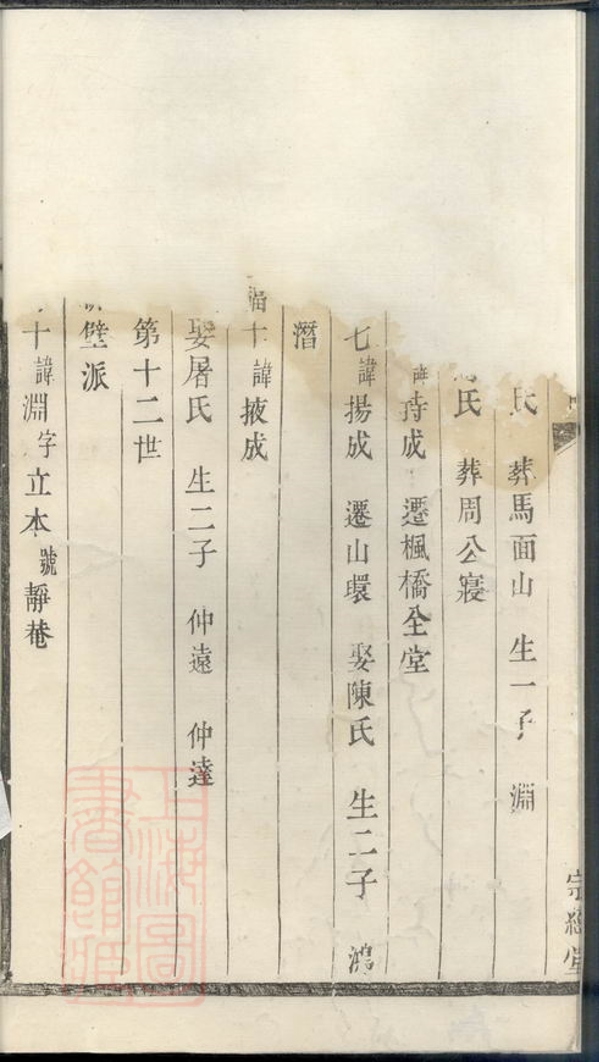 氏 葬馬面山 生一子 淵
氏 葬周公寝
持成 遷楓橋全堂
七諱揚成 遷山環 娶陳氏 生二子 鴻
潛
十諱掖成
娶屠氏 生二子 仲遠 仲達
第十二世
壁派
十諱淵字立本號靜菴
上海圖書館藏